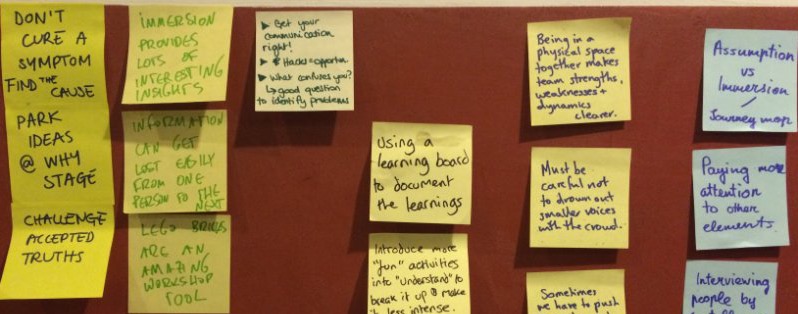 DON'T
CURE A
SYMPTOM
FIND THE
CAUSE
PARK
IDEAS
@ WHY
STAGE
CHALLENGE
ACCEPTED
TRUTHS
IMMERSION
PROVIDES
LOTS OF
INTERESTING
INSIGHTS
INFORMATION
CAN GET
LOST EASILY
FROM ONE
PERSON TO THE NEXT
LEGO BRICKS
ARE AN
AMAZING
WORKSHOP
TOOL
Get your
communication
right!
Hacks=opportun.
What confuses you?
↳ good question
to identify problems
Using a
learning board
to document
the learnings
Introduce more
"fun" activities
into "Understand" to
break it up & make
it less intense.
Being in a
physical space
together makes
team strengths,
weaknesses +
dynamics
clearer.
Must be
careful not
to drown out
smaller voices
with the crowd.
Sometimes
we have to push
Assumption
vs
Immersion
Journey map
Paying more
attention
to other
elements.
Interviewing
people by